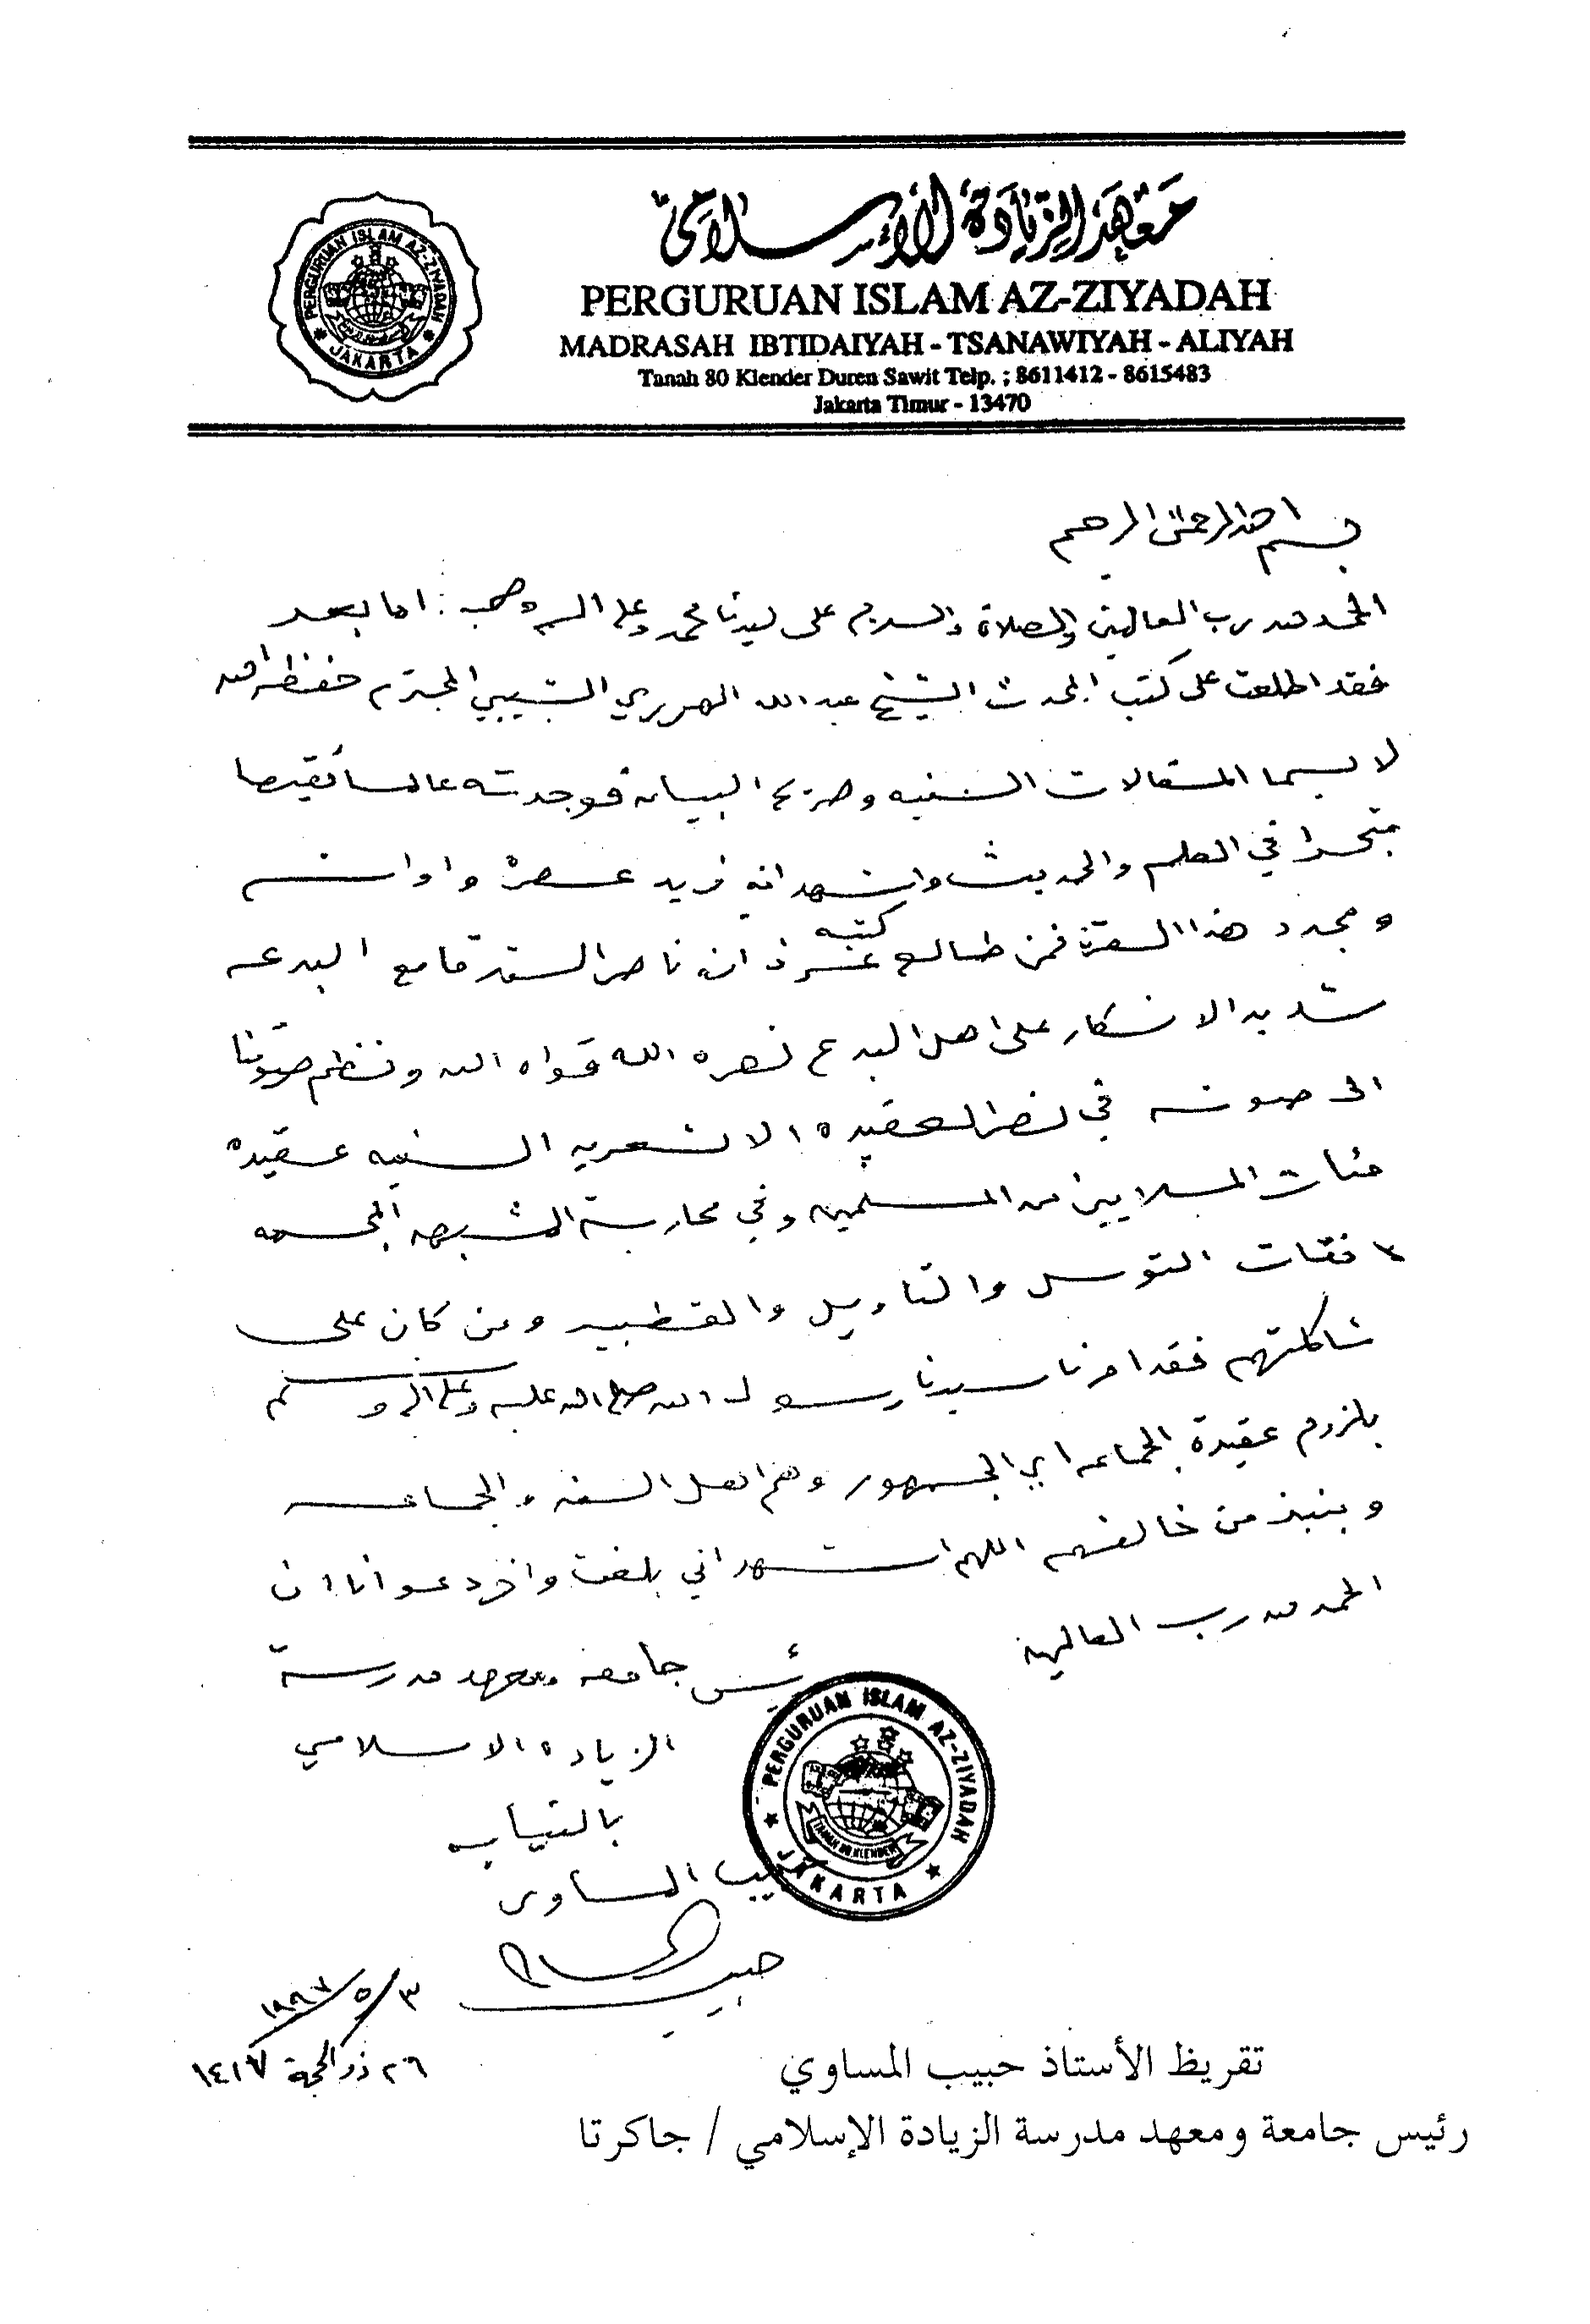 معهد الزيادة الإسلامي
PERGURUAN ISLAM AZ-ZIYADAH
MADRASAH IBTIDAIYAH - TSANAWIYAH - ALIYAH
Tanah 80 Klender Duren Sawit Telp. ; 8611412 - 8615483
Jakarta Timur - 13470
PERGURUAN ISLAM AZ-ZIYADAH
JAKARTA
بسم الله الرحمن الرحيم
الحمد لله رب العالمين والصلاة والسلام على سيدنا محمد وعلى اله وصحبه : اما بعد
فقد اطلعت على كتب المحدث الشيخ عبد الله الهرري الشيبي المحترم حفظه الله
لا سيما المقالات السنيه وصريح البيان فوجدته عالما فقيها
متبحرا في العلم والحديث واشهد انه فريد عصره واوانه
ومجدد هذا القرن فمن طالع كتبه عرف ان ناصر السنة قامع البدعه
شديد الانكار على اهل البدع نصره الله قواه الله ونضم صوتنا
الى صوته في نصر العقيده الاشعريه السنيه عقيدة
مئات الملايين من المسلمين وفي محاربة المشبهه المجسمه
نفات التوسل والتاويل والقطبيه ومن كان على
شاكلتهم فقد امرنا سيدنا رسول الله صلى الله عليه وعلى اله وسلم
بلزوم عقيدة الجماعه اي الجمهور وهم اهل السنه والجماعه
وبنبذ من خالفهم اللهم اشهد اني بلغت واخر دعوانا ان
الحمد لله رب العالمين
رئيس جامعه ومعهد مدرسة
الزياده الاسلامي
بالنيابه
حبيب المساوى
PERGURUAN ISLAM AZ-ZIYADAH
TANAH 80 KLENDER
JAKARTA
حبيب
٣/٥/١٩٩٧
٢٦ ذو الحجة ١٤١٧
تقريظ الأستاذ حبيب المساوي
رئيس جامعة ومعهد مدرسة الزيادة الإسلامي / جاكرتا